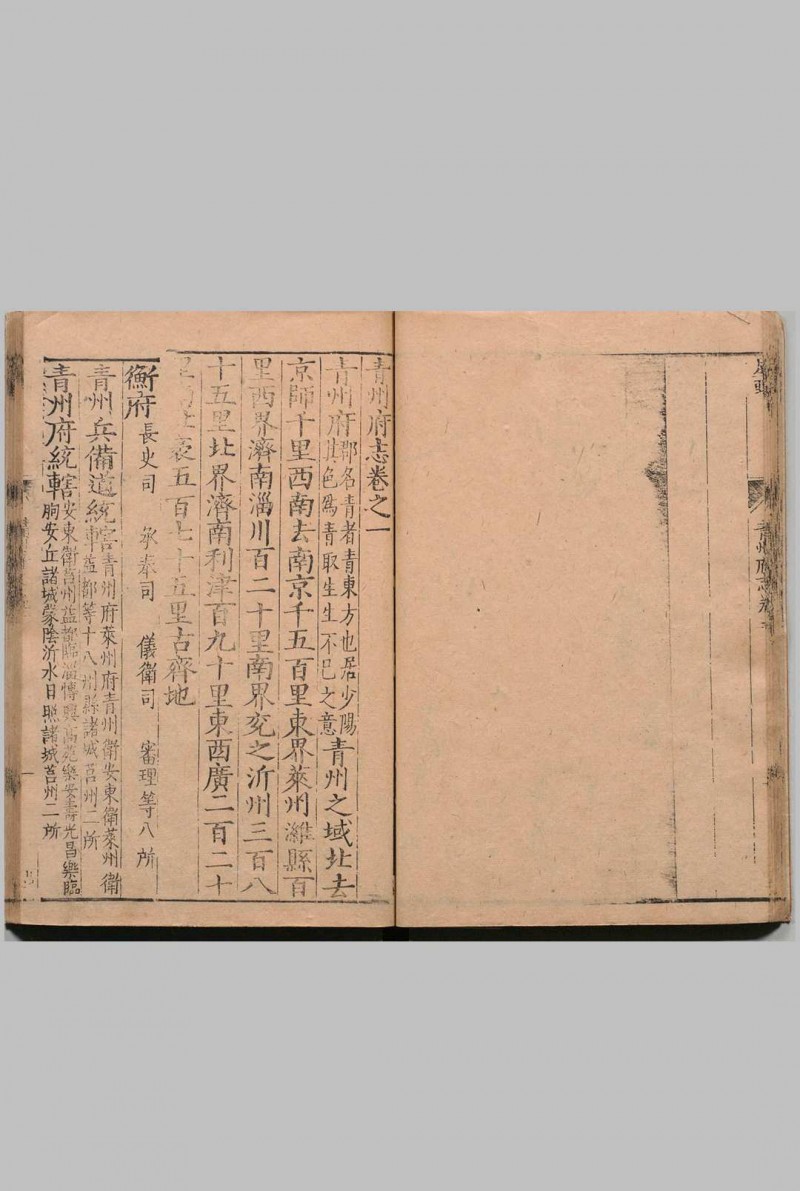 青州府志卷
青州府志卷之一
青州府郡名青者青東方也居少陽其色爲青取生生不已之意青州之域北去
京師千里西南去南京千五百里東界萊州濰縣百
里西界濟南淄川百二十里南界兗之沂州三百八
十五里北界濟南利津百九十里東西廣二百二十
袤五百七十五里古齊地
衡府 長史司 承奉司 儀衛司 審理等八所
青州兵備道統轄青州府萊州府青州衛安東衛萊州衛益都等十八州縣諸城莒州二所
青州府統轄安東衛莒州益都臨淄博興高苑樂安壽光昌樂臨朐安丘諸城蒙陰沂水日照諸城莒州二所